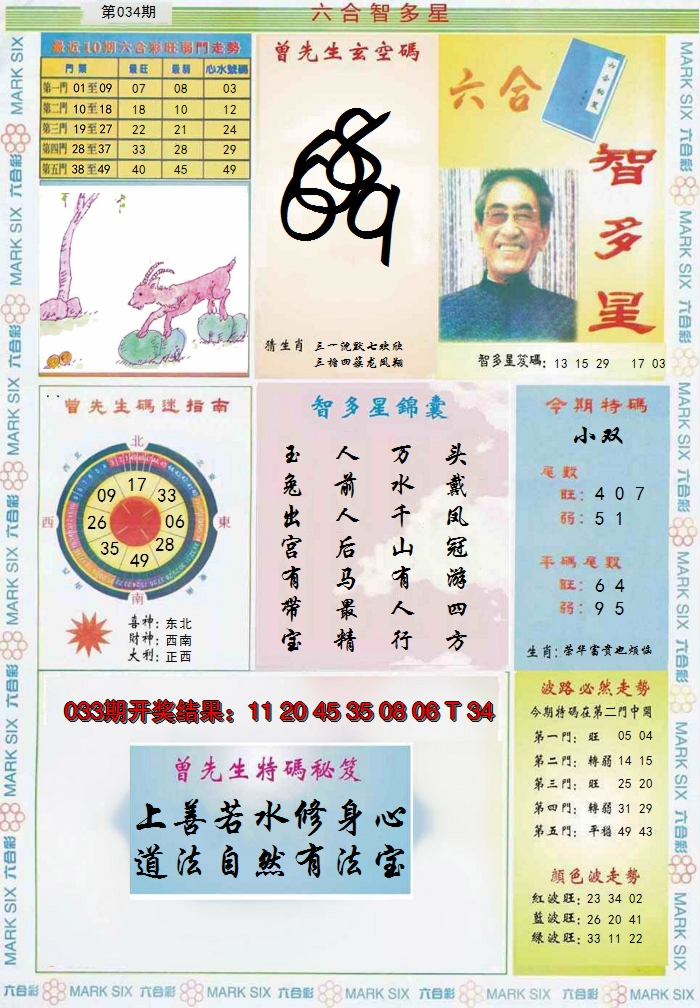 第034期
六合智多星
最近10期六合彩旺弱門走勢
門票 最旺 最弱 心水號碼
第一門 01至09 07 08 03
第二門 10至18 18 10 12
第三門 19至27 22 21 24
第四門 28至37 33 28 29
第五門 38至49 40 45 49
曾先生玄空碼
猜生肖 三一沈默七块欣
三擔四蒸龙凤翔
六合
智多星
智多星笈碼: 13 15 29 17 03
曾先生碼迷指南
北
西
東
南
西北
東北
西南
東南
17
33
06
28
49
35
26
09
喜神: 东北
財神: 西南
大利: 正西
智多星錦囊
头戴凤冠游四方
万水千山有人行
人前人后马最精
玉兔出宫有带宝
今期特碼
小双
尾數
旺: 4 0 7
弱: 5 1
平碼尾數
旺: 6 4
弱: 9 5
生肖: 荣华富贵也烦恼
033期开奖结果: 11 20 45 35 08 06 T 34
曾先生特碼秘笈
上善若水修身心
道法自然有法宝
波路必然走勢
今期特碼在第二門中開
第一門: 旺 05 04
第二門: 轉弱 14 15
第三門: 旺 25 20
第四門: 轉弱 31 29
第五門: 平穩 49 43
顏色波走勢
紅波旺: 23 34 02
藍波旺: 26 20 41
綠波旺: 33 11 22
六合彩 MARK SIX 六合彩 MARK SIX 六合彩 MARK SIX 六合彩 MARK SIX 六合彩